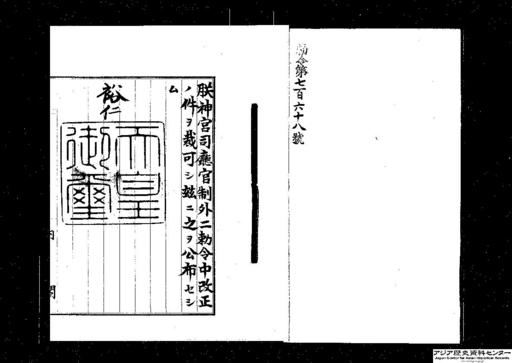 勅令第七百六十八號
朕神宮司廳官制外二勅令中改正
ノ件ヲ裁可シ玆ニ之ヲ公布セシ
ム
裕仁
天皇
御璽
内閣
アジア歴史資料センター
Japan Center for Asian Historical Records